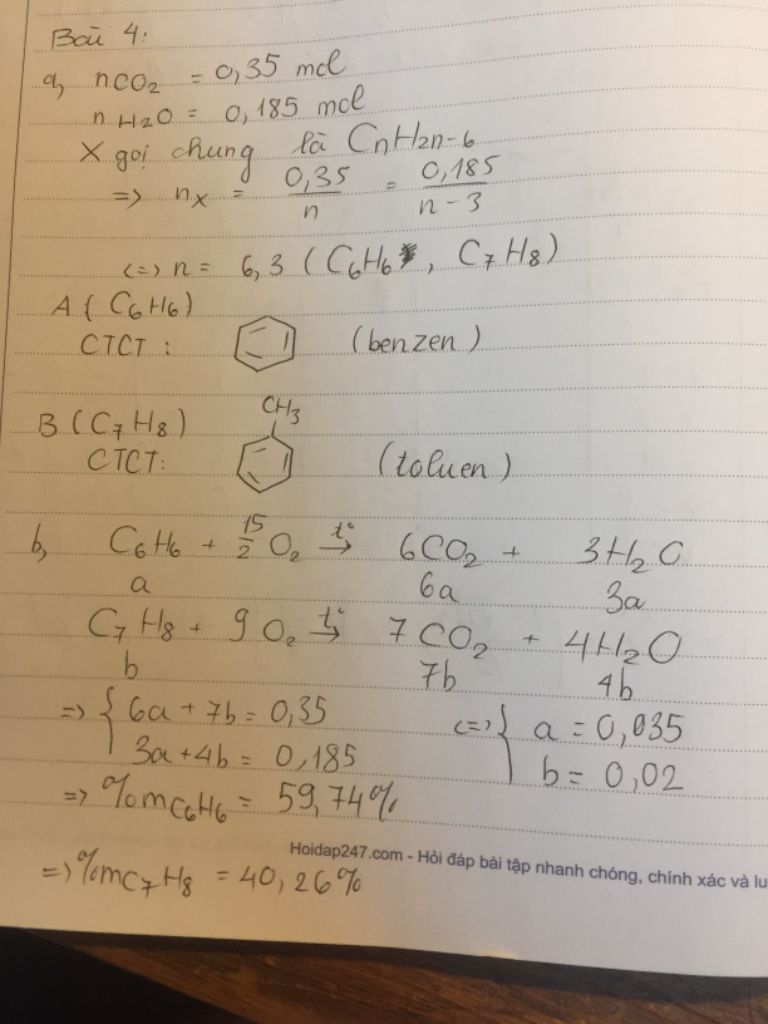 Bài 4:
a, nCO₂ = 0,35 mol
nH₂O = 0,185 mol
X gọi chung là CnH2n-6
=> nₓ = 0,35/n = 0,185/n-3
<=> n = 6,3 (C₆H₆, C₇H₈)
A (C₆H₆)
CTCT : (benzen)
CH₃
B (C₇H₈)
CTCT: (toluen)
b, C₆H₆ + 15/2 O₂ t°→ 6CO₂ + 3H₂O
a 6a 3a
C₇H₈ + 9O₂ t°→ 7CO₂ + 4H₂O
b 7b 4b
=> { 6a + 7b = 0,35 <=> { a = 0,035
3a + 4b = 0,185 b = 0,02
=> %mC₆H₆ = 59,74%
Hoidap247.com - Hỏi đáp bài tập nhanh chóng, chính xác và lu
=> %mC₇H₈ = 40,26%